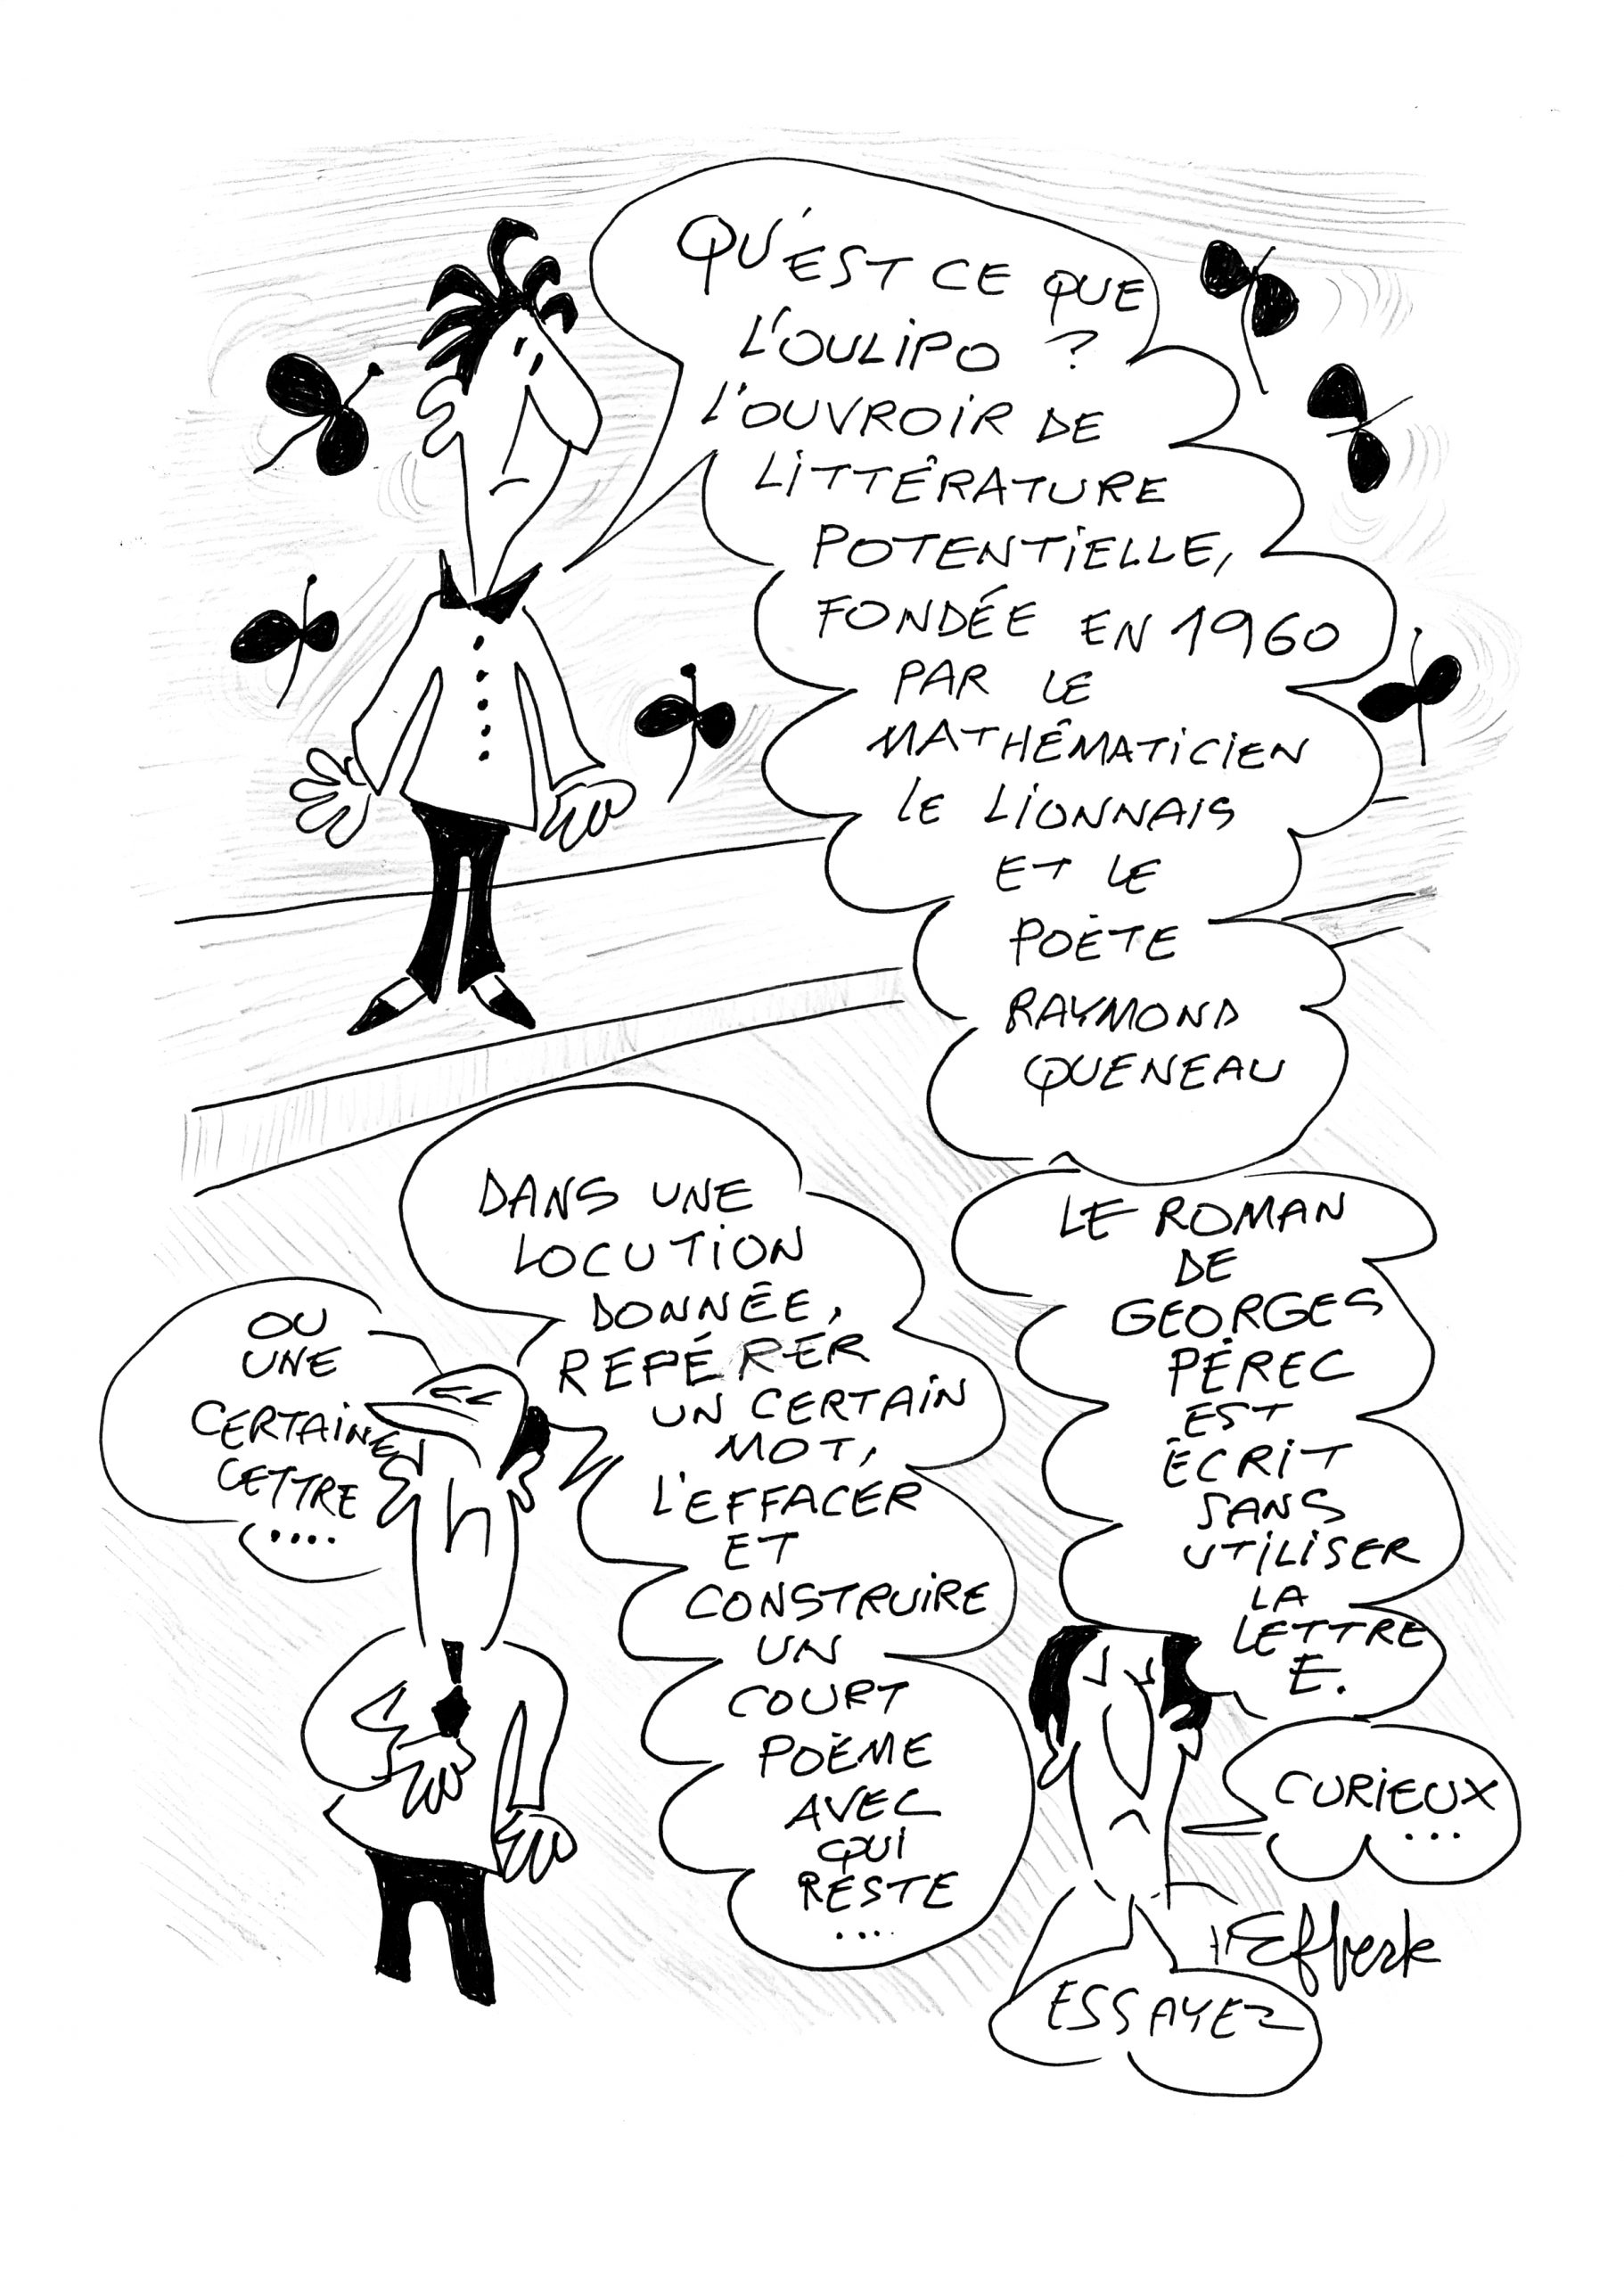 QU'EST CE QUE
L'OULIPO ?
L'OUVROIR DE
LITTÉRATURE
POTENTIELLE,
FONDÉE EN 1960
PAR LE
MATHÉMATICIEN
LE LIONNAIS
ET LE
POÈTE
RAYMOND
QUENEAU
DANS UNE
LOCUTION
DONNÉE,
REPÉRER
UN CERTAIN
MOT,
L'EFFACER
ET
CONSTRUIRE
UN
COURT
POÈME
AVEC
QUI
RESTE
....
OU
UNE
CERTAINE
LETTRE
....
LE ROMAN
DE
GEORGES
PÉREC
EST
ÉCRIT
SANS
UTILISER
LA
LETTRE
E.
CURIEUX
...
ESSAYEZ